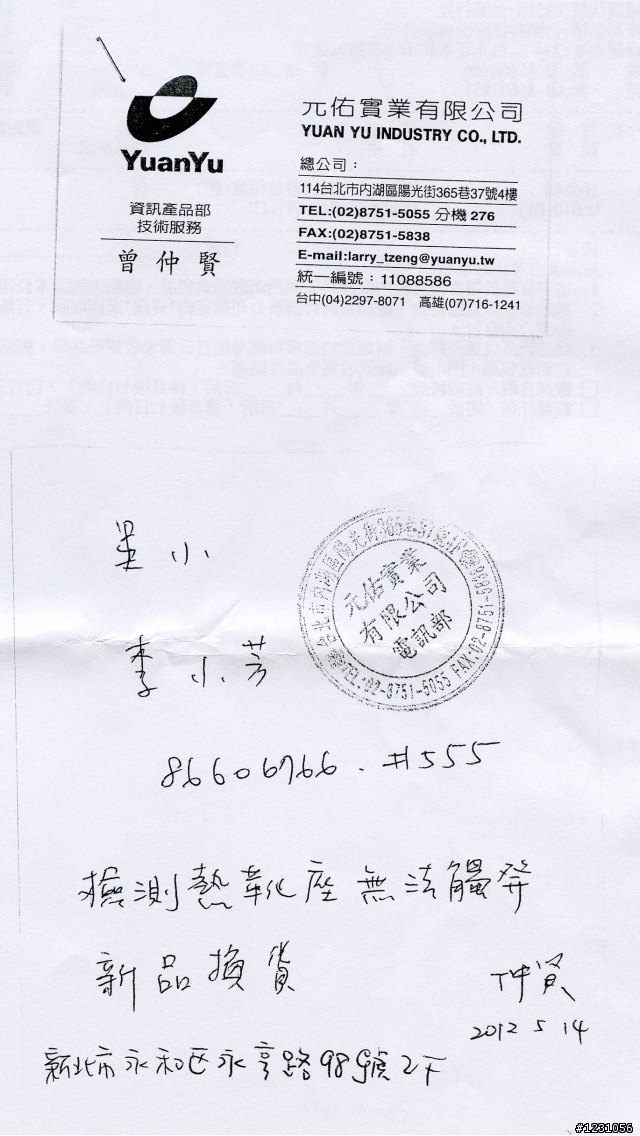 YuanYu
資訊產品部
技術服務
曾仲賢
元佑實業有限公司
YUAN YU INDUSTRY CO., LTD.
總公司：
114台北市內湖區陽光街365巷37號4樓
TEL:(02)8751-5055 分機 276
FAX:(02)8751-5838
E-mail:larry_tzeng@yuanyu.tw
統一編號：11088586
台中(04)2297-8071 高雄(07)716-1241
小
李小芳
台北市內湖區陽光街365巷37號4樓
元佑實業
有限公司
電訊部
TEL:02-8751-5055 FAX:02-8751-
86606766.#555
檢測熱靴座無法觸發
新品換貨
仲賢
2012 5 14
新北市永和区永亨路98號2F
#1231056